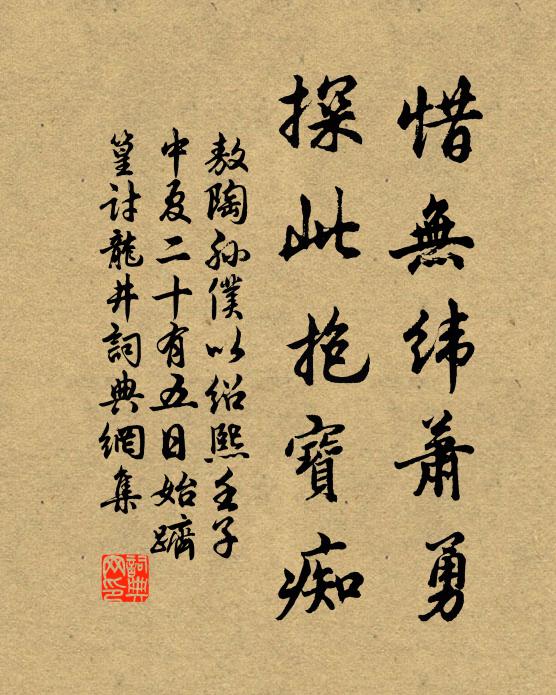 惜無緯蕭勇
探此抱寶痴
敖陶孫僕以紹熙壬子
中夏二十有五日始躋
篁討龍井詞典網集
詞典网印